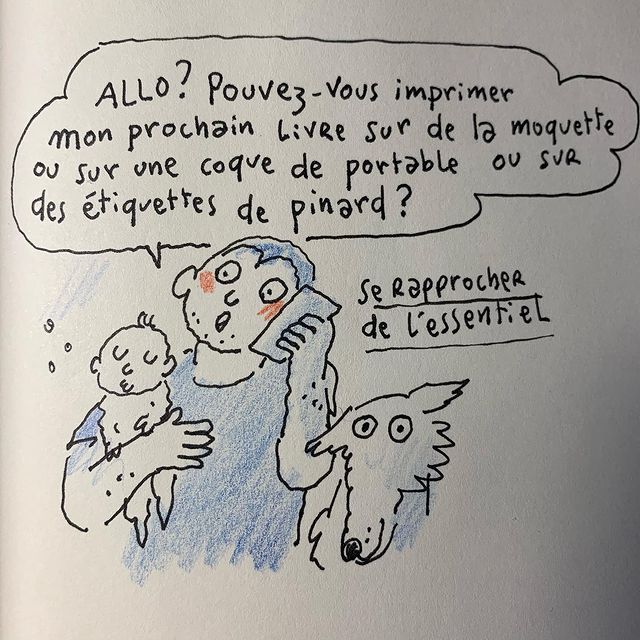 ALLO? Pouvez-vous imprimer
mon prochain Livre sur de la moquette
ou sur une coque de portable ou sur
des étiquettes de pinard?
Se Rapprocher
de l'essentiel